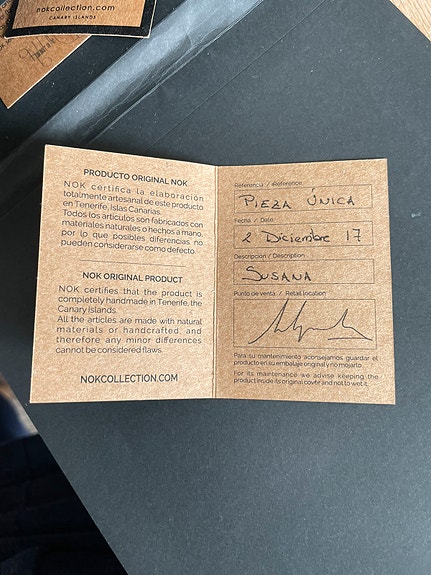 nokcollection.com
CANARY ISLANDS
PRODUCTO ORIGINAL NOK
NOK certifica la elaboración
totalmente artesanal de este producto
en Tenerife, Islas Canarias.
Todos los artículos son fabricados con
materiales naturales o hechos a mano,
por lo que posibles diferencias no
pueden considerarse como defecto.
NOK ORIGINAL PRODUCT
NOK certifies that the product is
completely handmade in Tenerife, the
Canary Islands.
All the articles are made with natural
materials or handcrafted, and
therefore any minor differences
cannot be considered flaws.
NOKCOLLECTION.COM
Referencia / Reference
PIEZA ÚNICA
Fecha / Date
2 Diciembre 17
Descripción / Description
SUSANA
Punto de venta / Retail location
Para su mantenimiento aconsejamos guardar el
producto en su embalaje original y no mojarlo.
For its maintenance we advise keeping the
product inside its original cover and not to wet it.